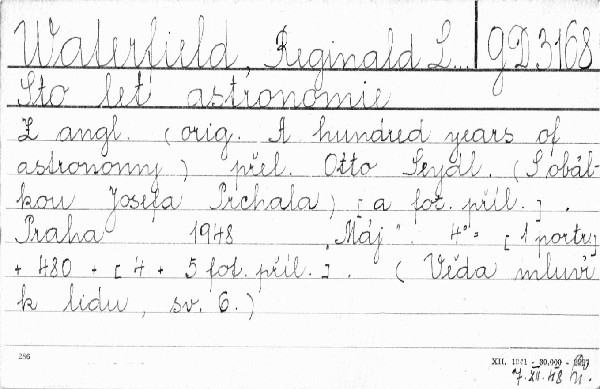 Waterfield, Reginald L... gD3168
Sto let astronomie
Z angl. (orig. A hundred years of
astronomy) přel. Otto Seydl. (S obál-
kou Josefa Prchala) [a fot. příl.].
Praha 1948 „Máj". 4° [1 portr]
+ 480 + [4 + 5 fot. příl.]. (Věda mluví
k lidu, sv. 6.)
286 XII. 1941 - 30.000
7.XII.48